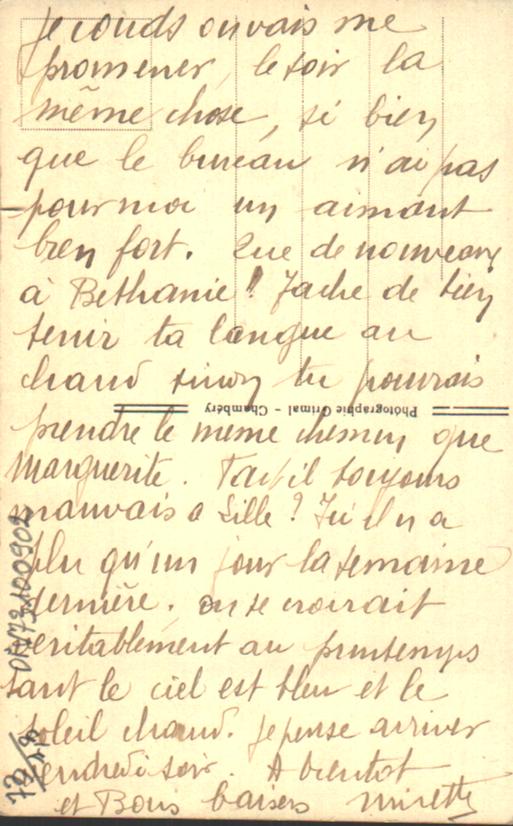 je couds ou vais me
promener, le soir la
même chose, si bien
que le bureau n'ai pas
pour moi un aimant
bien fort. Que de nouveau
à Béthanie? Tache de bien
tenir ta langue au
chaud sinon tu pourrais
Photographie Grimal - Chambéry
prendre le meme chemin que
Marguerite. Fait il toujours
mauvais a Lille? Ici il n a
plu qu'un jour la semaine
dernière. on se croirait
véritablement au printemps
tant le ciel est bleu et le
soleil chaud. je pense arriver
vendredi soir. A bientot
et Bons baisers Mirette